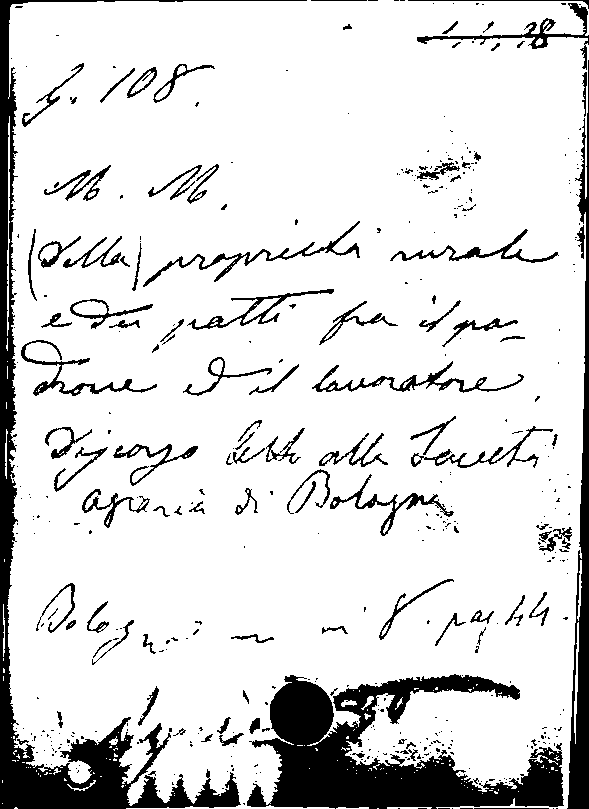 4.4.28
G. 108.
M. M.
(Della) proprietà rurale
e dei patti fra il pa-
drone ed il lavoratore.
Discorso letto alla Società
agraria di Bologna
Bologna in 8. pag 44.